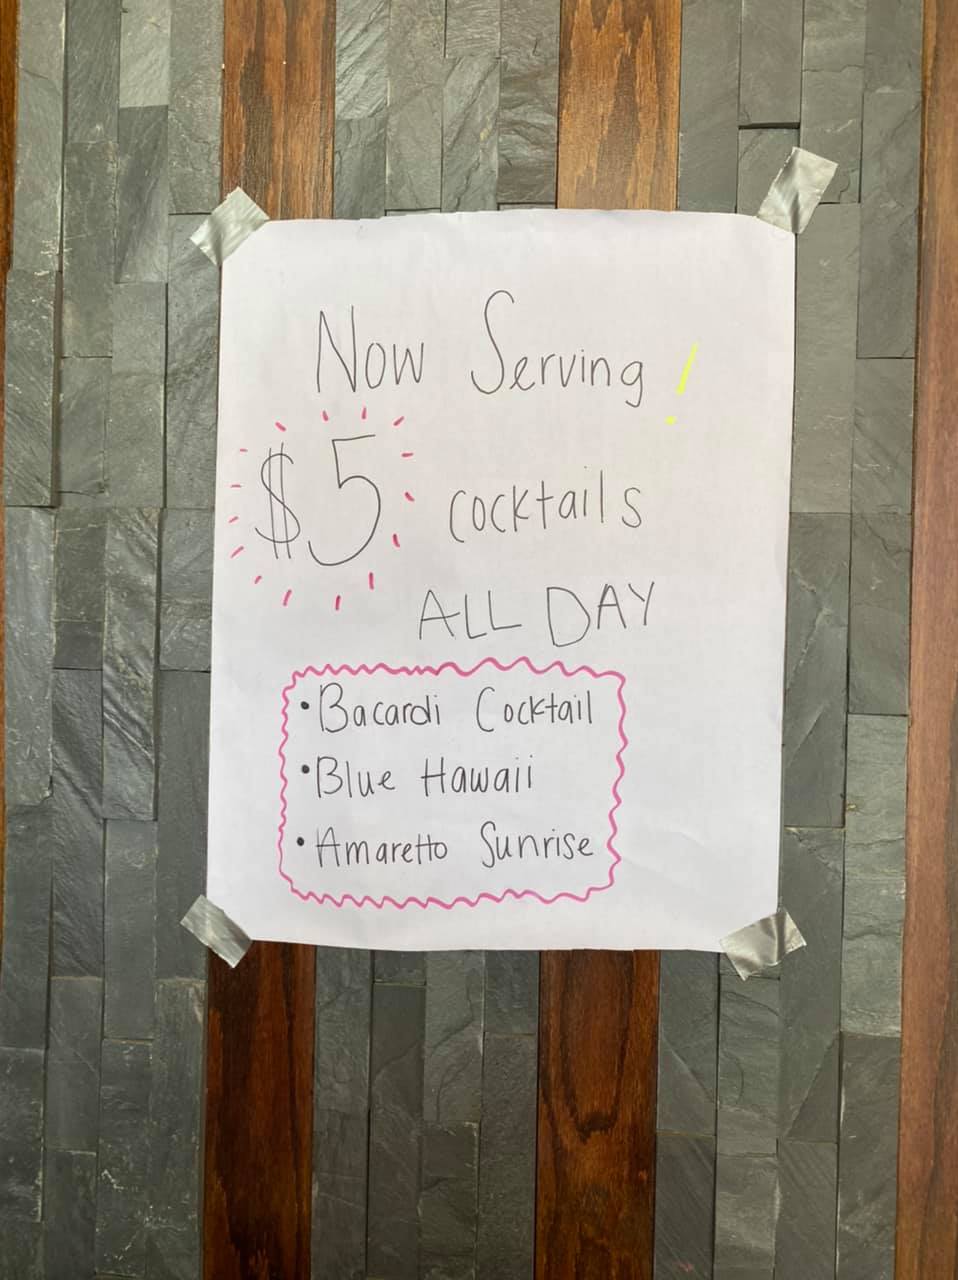 Now Serving!
$5 cocktails
ALL DAY
• Bacardi Cocktail
• Blue Hawaii
• Amaretto Sunrise